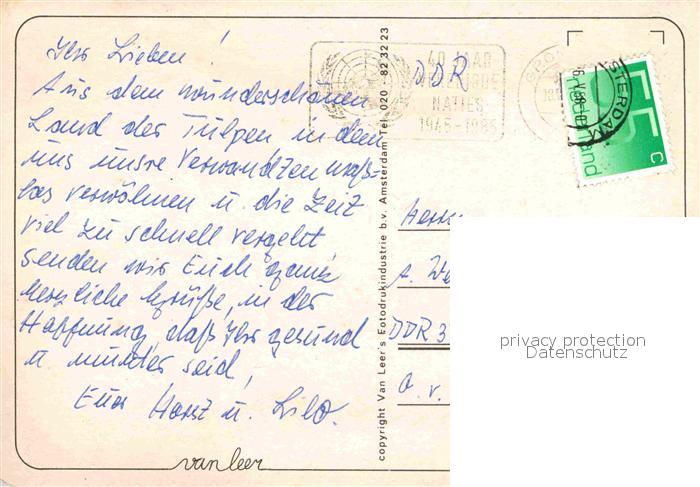 Ihr Lieben!
Aus dem wunderschönen
Land der Tulpen in dem
uns unsre Verwandten maß=
los verwöhnen u. die Zeit
viel zu schnell vergeht
senden wir Euch ganz
herzliche Grüße, in der
Hoffnung, daß Ihr gesund
u. munter seid,
Eure Horst u. Lilo.
van leer
copyright Van Leer's Fotodrukindustrie b.v. Amsterdam Tel. 020 - 82 32 23
40 JAAR
NATIES
1945-1985
DDR
STERDAM
55 c
nederland
Herrn
A. We
DDR 3
O. v.
privacy protection
Datenschutz